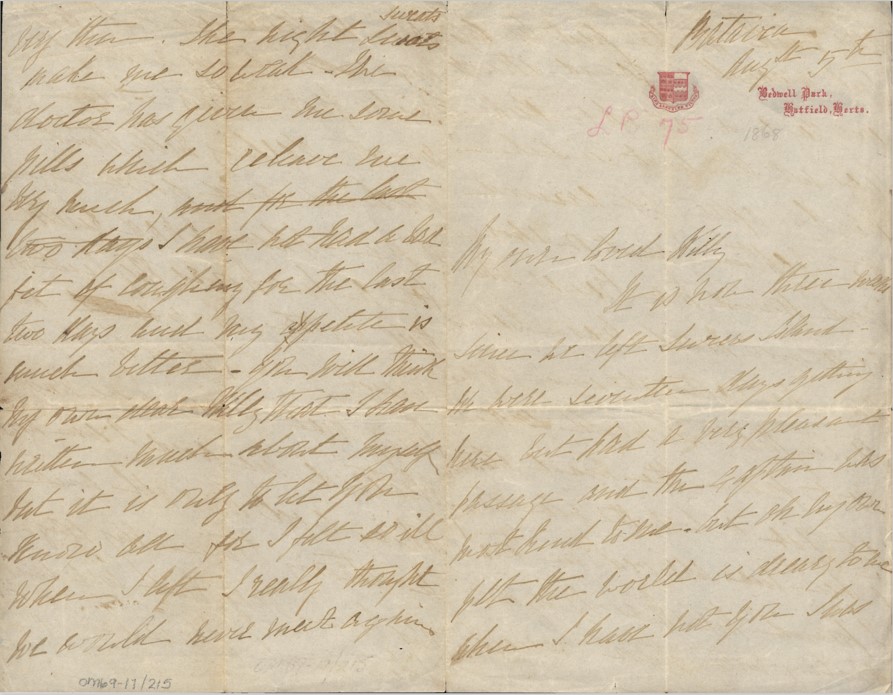 Batavia
Augst 5th
Bedwell Park,
Hatfield, Herts.
L B 75
1868
My own loved Willy
It is now three weeks
since we left Sweers Island -
We were seventeen days getting
here but had a very pleasant
passage and the Captain was
most kind to me - but oh my own
pet the world is dreary to me
when I have not you
very thin. The night sweats
sweats
make me so weak - The
doctor has given me some
pills which releave me
very much, and for the last
two days I have not had a bad
fit of coughing for the last
two days and my appetite is
much better - You will think
my own dear Willy that I have
written much about myself
but it is only to let you
know all for I felt so ill
when I left I really thought
we would never meet again
OM69-17/215